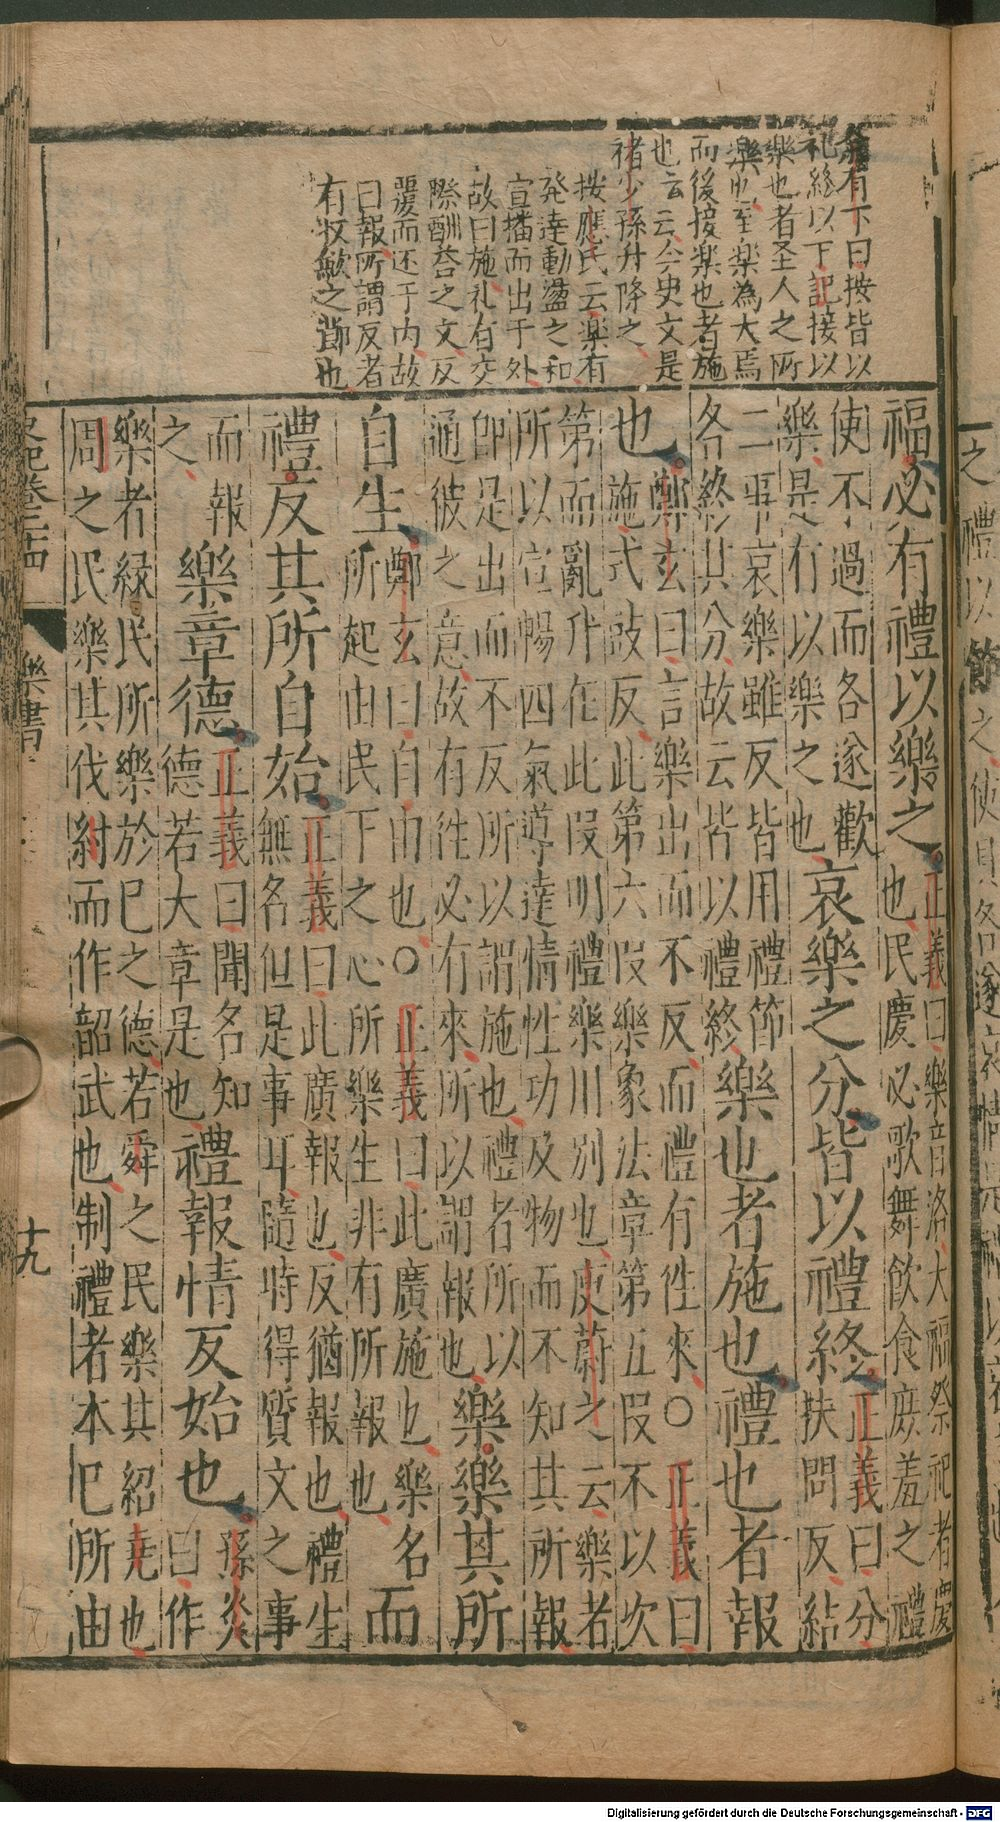 之禮以節之使其各遂哀情是禮以
有下曰按皆以
礼終以下記接以
樂也者圣人之所
樂也至楽為大焉
而後接楽也者施
也云云今史文是
褚少孫升降之
按應氏云楽有
発達動盪之和
宣播而出于外
故曰施礼有交
際酬荅之文反
覆而还于内故
曰報所謂反者
有收斂之節也
福必有禮以樂之正義曰樂音洛大福祭祀者慶也民慶必歌舞飲食庶羞之禮
使不過而各遂歡樂是有以樂之也哀樂之分皆以禮終正義曰分扶問反結
二事哀樂雖反皆用禮節各終其分故云皆以禮終樂也者施也禮也者報
也鄭玄曰言樂出而不反而禮有往來○正義曰施式豉反此第六段樂象法章第五段不以次
第而亂升在此段明禮樂用別也庾蔚之云樂者所以宣暢四氣導達情性功及物而不知其所報
即是出而不反所以謂施也禮者所以通彼之意故有往必有來所以謂報也樂樂其所
自生鄭玄曰自由也○正義曰此廣施也樂名所起由民下之心所樂生非有所報也而
禮反其所自始正義曰此廣報也反猶報也禮生無名但是事耳隨時得質文之事
而報之樂章德正義曰聞名知德若大章是也禮報情反始也孫炎曰作
樂者緣民所樂於己之德若舜之民樂其紹堯也周之民樂其伐紂而作韶武也制禮者本己所由
史記卷二十四 樂書 十九
Digitalisierung gefördert durch die Deutsche Forschungsgemeinschaft - DFG